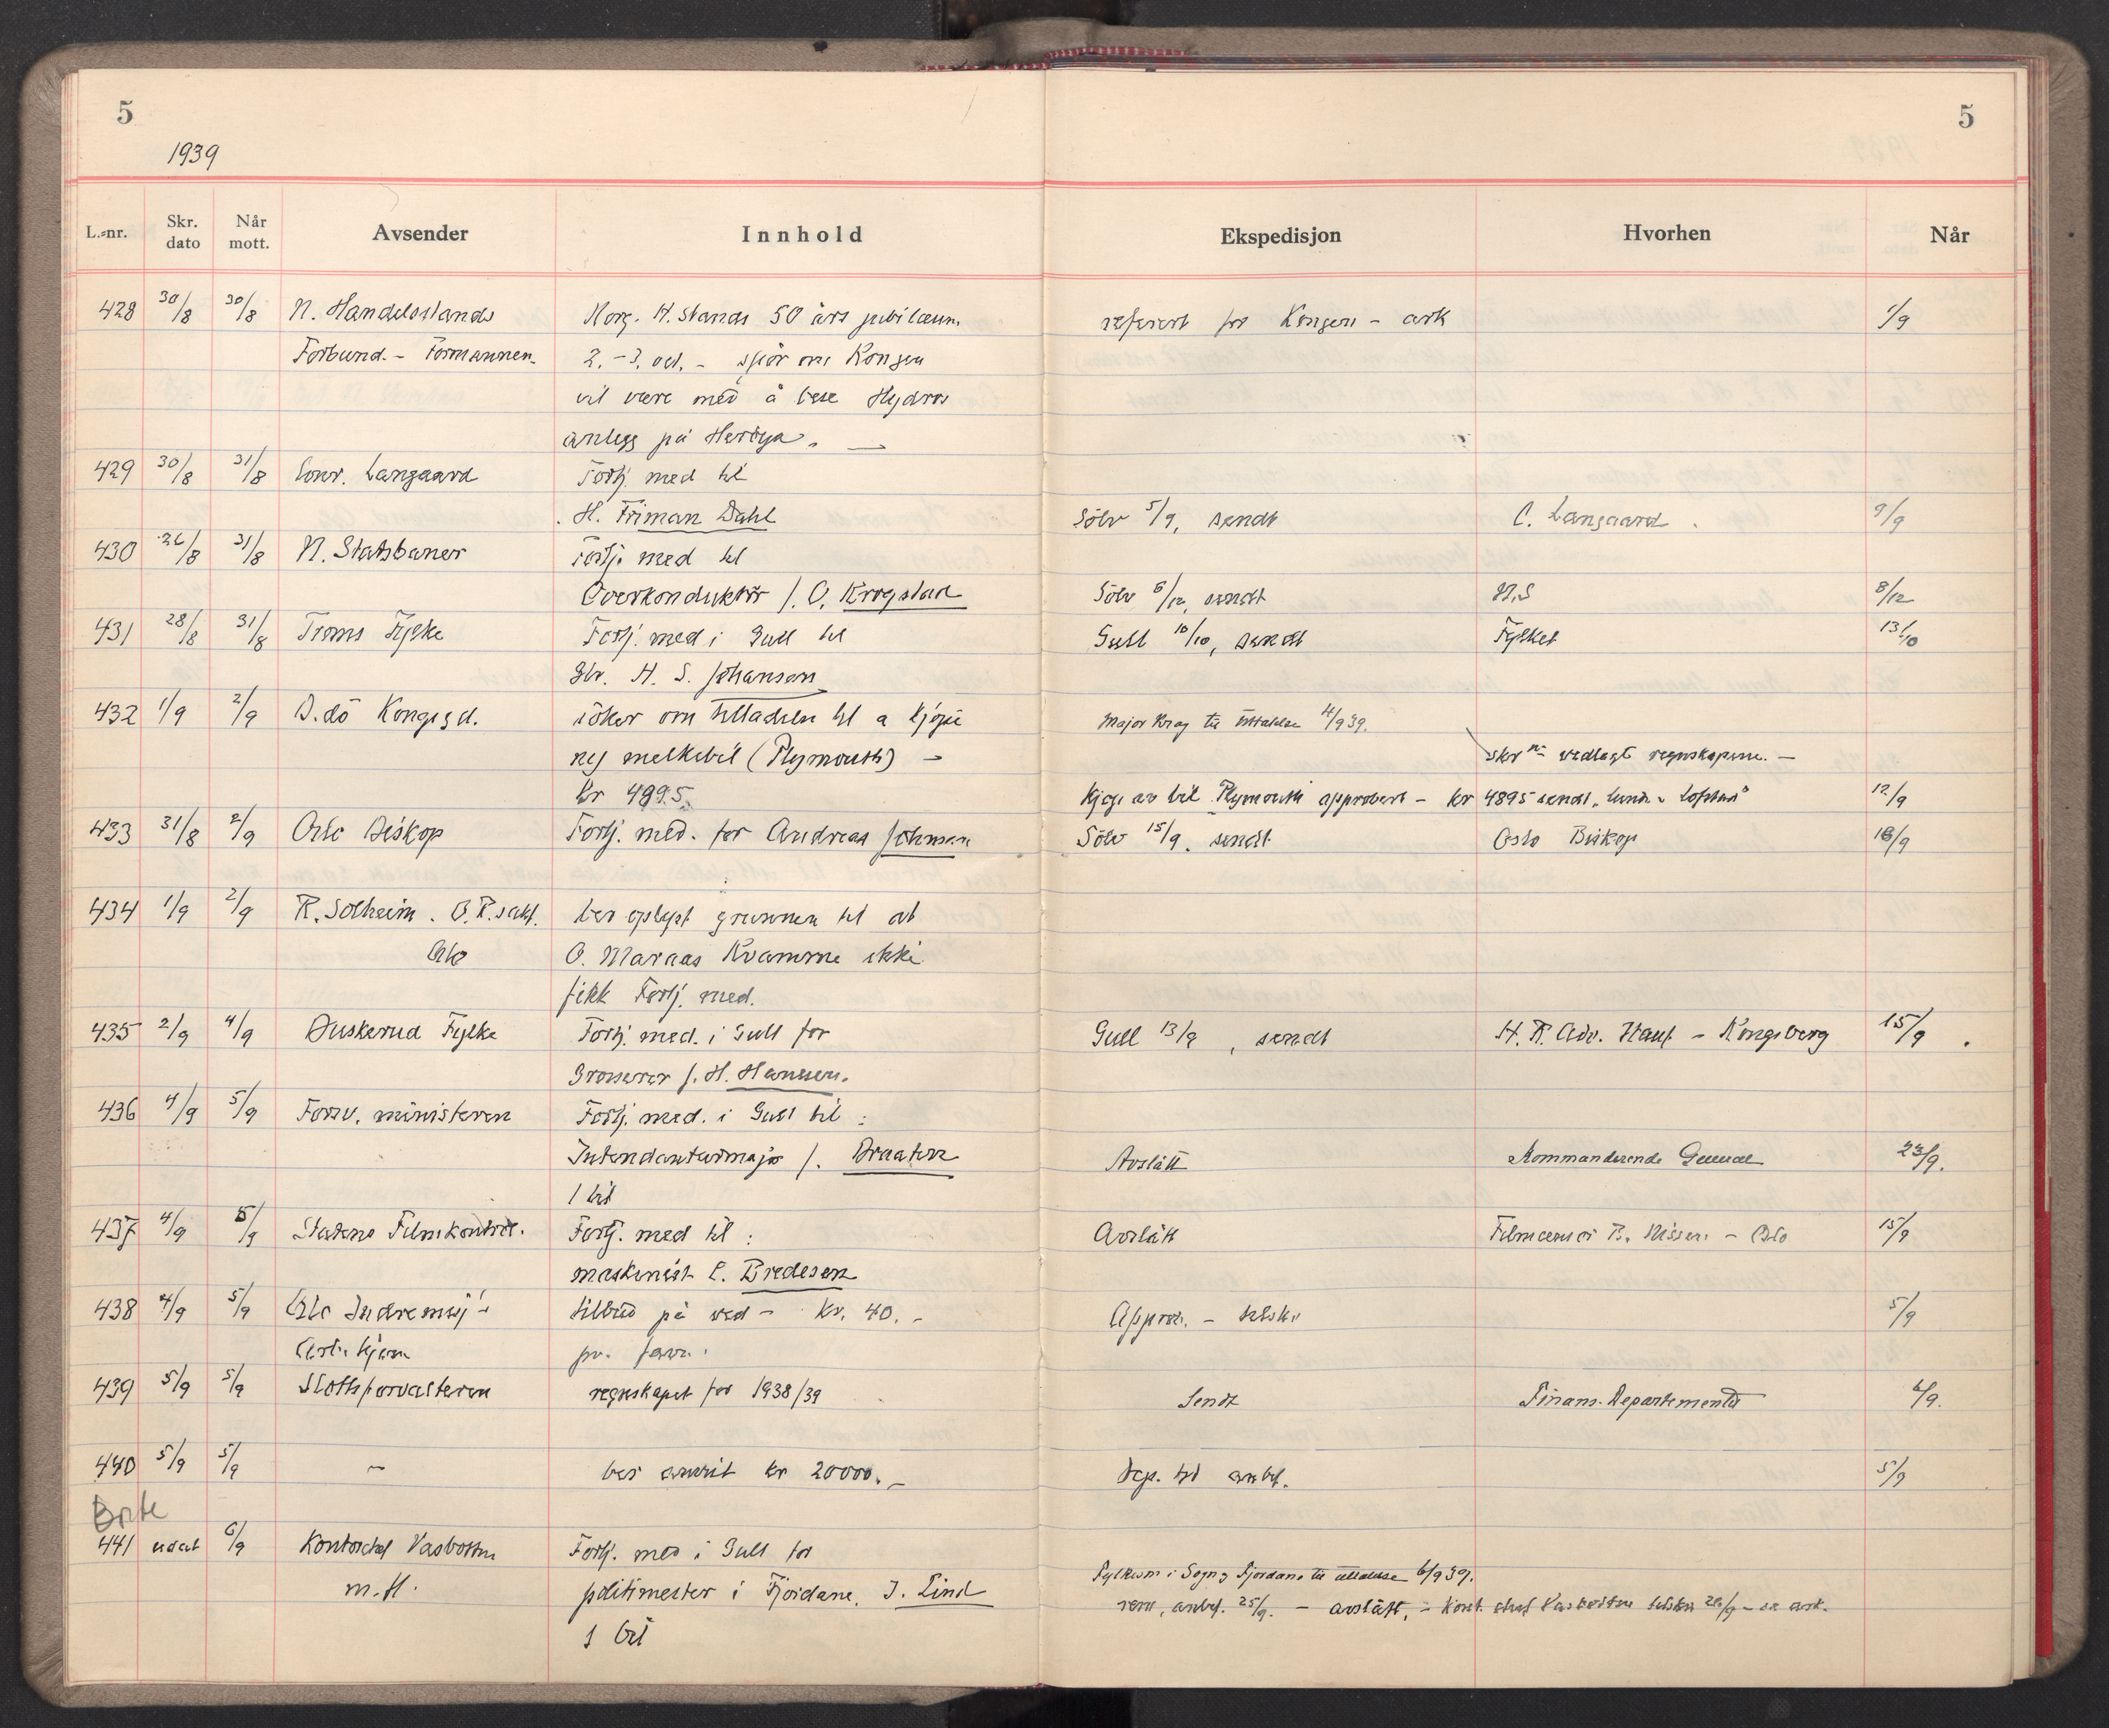 5
5
1939
L.-nr. Skr. dato Når mott. Avsender Innhold Ekspedisjon Hvorhen Når
428 30/8 30/8 N. Handelsstands Norg. H. Stands 50 års jubilæum referert for Kongen - ark 1/9
Forbund. - Formannen 2.-3. oct. - spör om Kongen
vil være med å bese Hydros
anlegg på Heröya. —
429 30/8 31/8 Conr. Langaard Fortj. med til
H. Friman Dahl Sölv 5/9, sendt C. Langaard 9/9
430 26/8 31/8 N. Statsbaner Fortj. med til
Overkonduktör J. O. Krogstad Sölv 6/12, sendt N.S 8/12
431 28/8 31/8 Troms Fylke Fortj. med i Gull til Gull 10/10, sendt Fylket 13/10
H. S. Johansen
432 1/9 2/9 Kongsgd. söker om tilladelse til a kjöpe Major Krag til uttalelse 4/9 39.
ny melkebil (Plymouth) - vedlagt regnskapene. -
kr 4895. Kjöp av bil Plymouth approbert - kr 4895 sendt 12/9
433 31/8 2/9 Oslo Biskop Fortj. med. for Andreas Johnsen Sölv 15/9. sendt Oslo Biskop 18/9
434 1/9 2/9 R. Solheim. O.R.sakf. ber oplyst grunnen til at
Oslo O. Maraas Kvamme ikke
fikk Fortj. med.
435 2/9 4/9 Buskerud Fylke Fortj. med. i Gull for Gull 13/9, sendt H. R. Adv. - Kongsberg 15/9.
Grosserer J. H. Hanssen.
436 4/9 5/9 Forsv. ministeren Fortj. med. i Gull til :
Intendanturmajor J. Braaten Avslått Kommanderende General 23/9.
1 bil
437 4/9 5/9 Statens Filmkontrol. Fortj. med til : Avslått Filmcensor B. Nissen - Oslo 15/9
maskinist E. Bredesen
438 4/9 5/9 Oslo tilbud på ved - kr. 40.- Approb. - 5/9
pr. favn.
439 5/9 5/9 Slottsforvalteren regnskapet for 1938/39 Sendt Finans-Departementet 6/9.
440 5/9 5/9 — ber anvist kr 20000.- Dep. til anbef. 5/9
441 udat 6/9 Kontorchef Vasbotten Fortj. med i Gull for
m.fl. politimester i Fjordane. J. Lind Fylkesm i Sogn og Fjordane til uttalelse 6/9 39.
1 bil anbef. 25/9. - avslått, - Kont. chef Vasbotten - se ark.